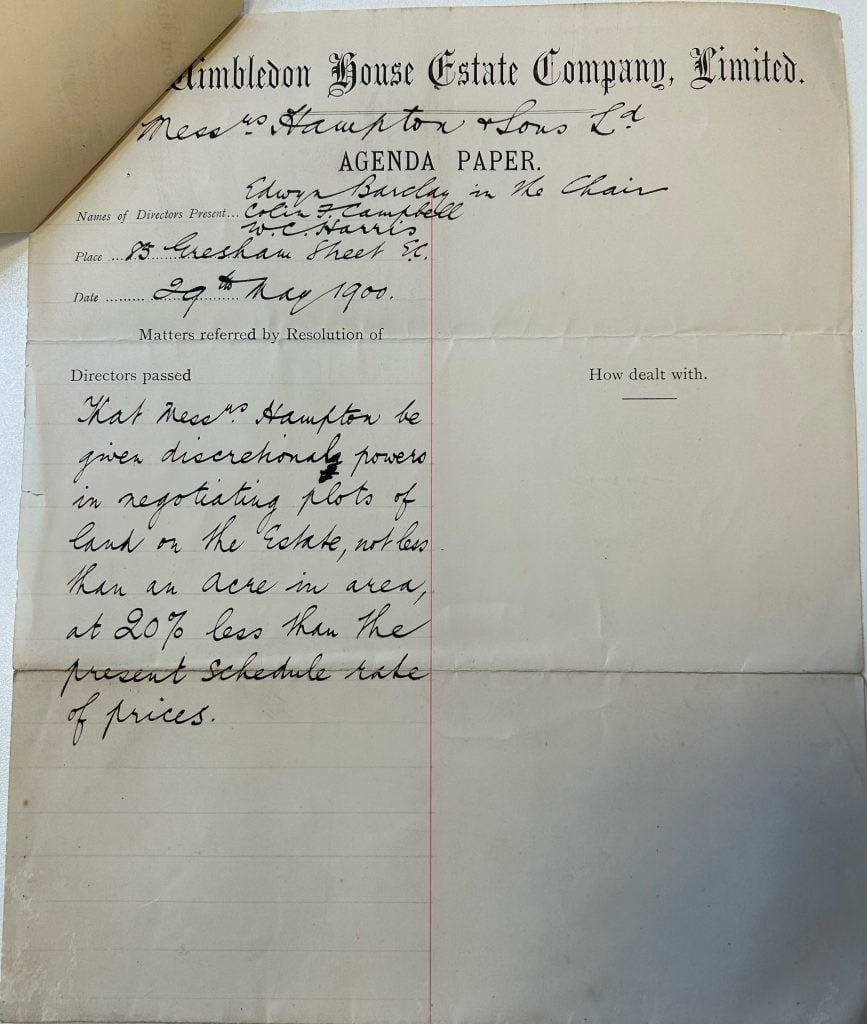 Wimbledon House Estate Company, Limited.
Messrs Hampton & Sons Ld
AGENDA PAPER.
Edwyn Barclay in the Chair
Names of Directors Present... Colin F. Campbell
W. C. Harris
Place ... 85 Gresham Street E.C.
Date ......... 29th May 1900.
Matters referred by Resolution of
Directors passed
How dealt with.
That Messrs. Hampton be
given discretional powers
in negotiating plots of
land on the Estate, not less
than an acre in area,
at 20% less than the
present schedule rate
of prices.